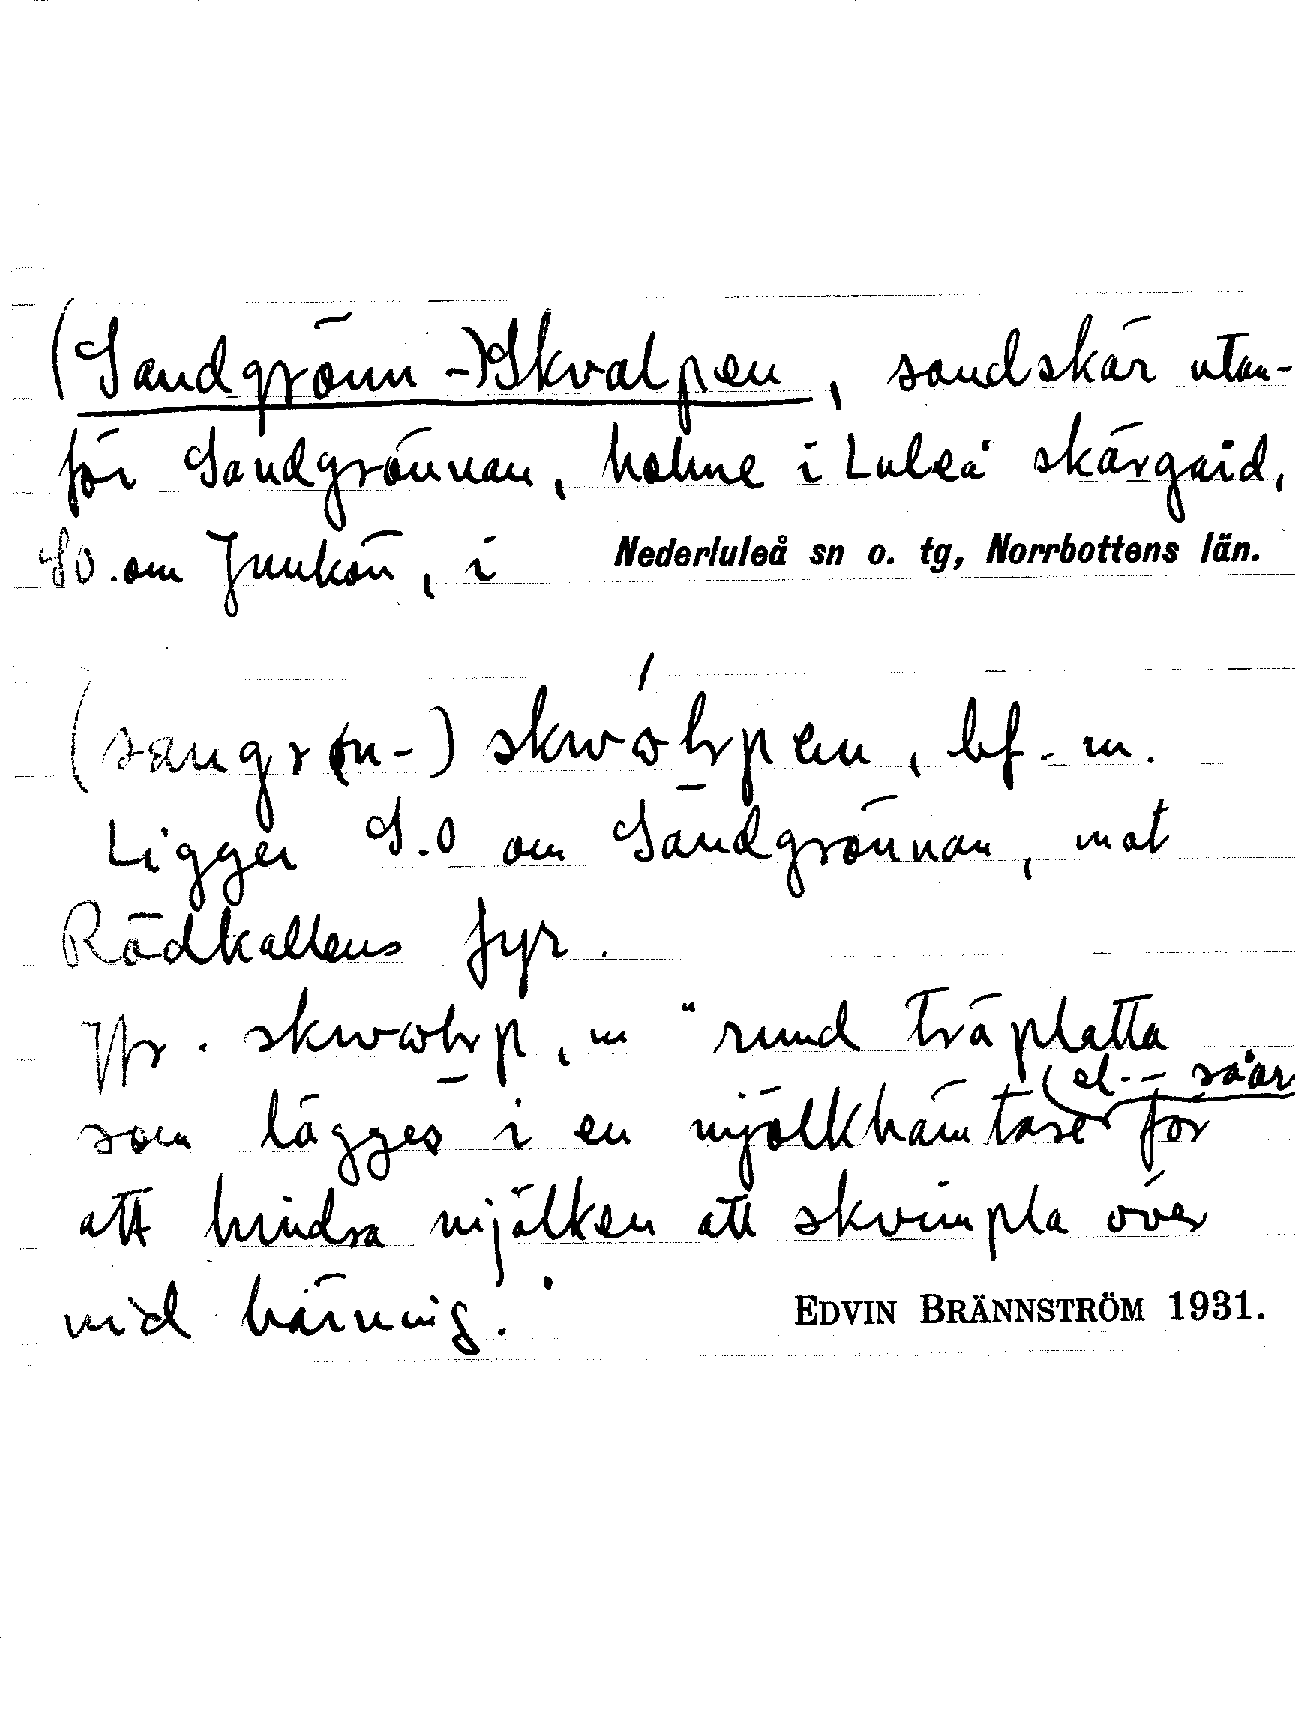 (Sandgrönn-)Skvalpen, sandskär utan-
för Sandgrönnan, holme i Luleå skärgård,
SO. om Junkön, i Nederluleå sn o. tg, Norrbottens län.
bf. m.
Ligger S.O om Sandgrönnan, mot
Rödkallens fyr.
Jfr. m "rund träplatta
som lägges i en mjölkhämtare (el. - såar) för
att hindra mjölken att skvimpla över
vid bärning."
EDVIN BRÄNNSTRÖM 1931.